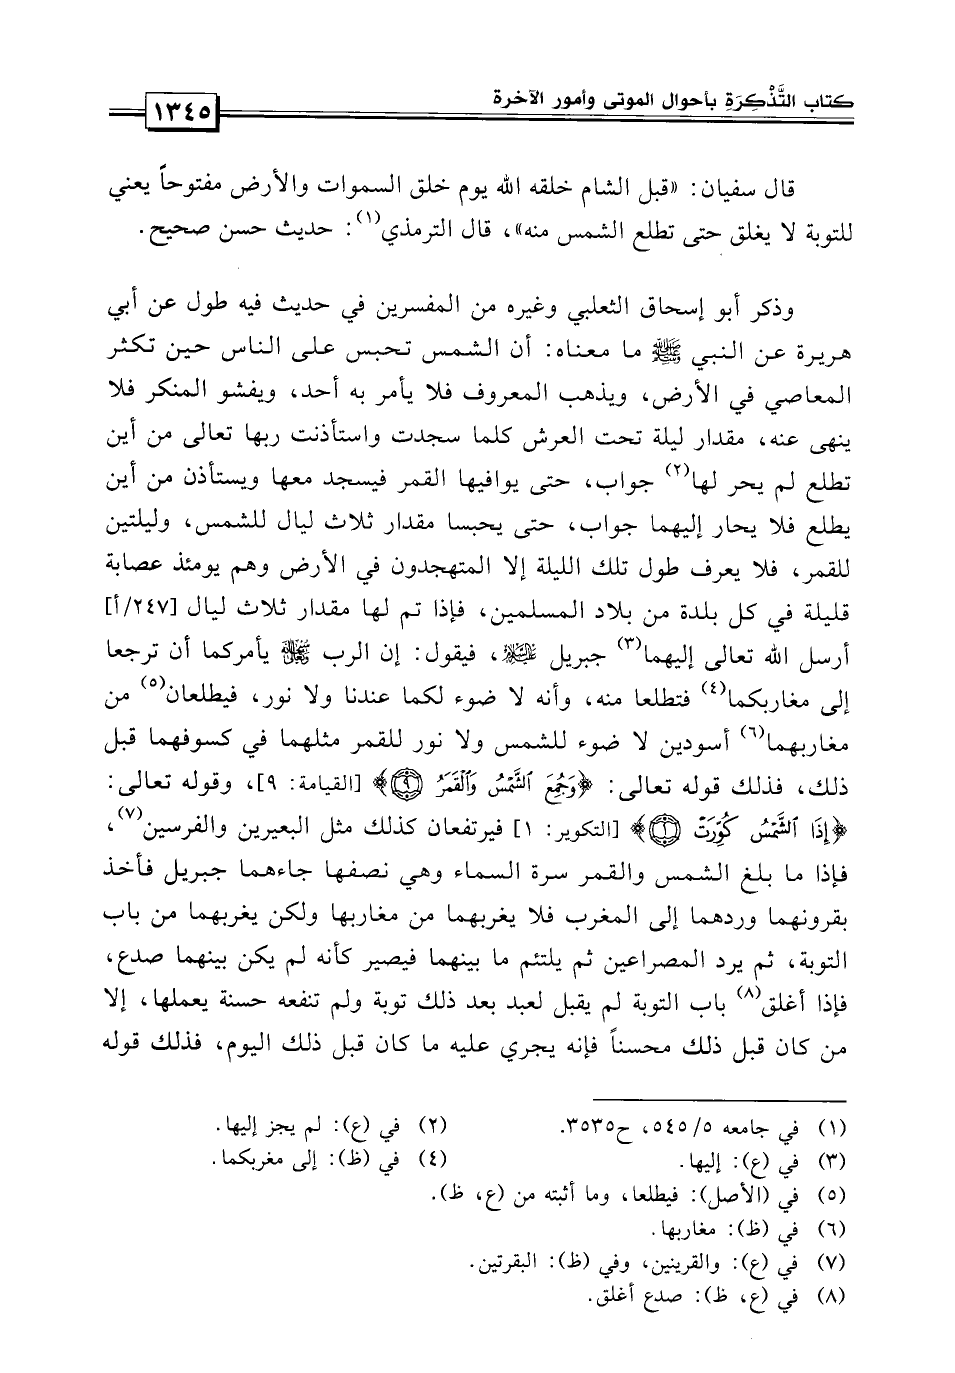 كتاب التَّذْكِرَةِ بأحوال الموتى وأمور الآخرة
١٣٤٥
قال سفيان: «قبل الشام خلقه الله يوم خلق السموات والأرض مفتوحاً يعني
للتوبة لا يغلق حتى تطلع الشمس منه»، قال الترمذي(١): حديث حسن صحيح.
وذكر أبو إسحاق الثعلبي وغيره من المفسرين في حديث فيه طول عن أبي
هريرة عن النبي ﷺ ما معناه: أن الشمس تحبس على الناس حين تكثر
المعاصي في الأرض، ويذهب المعروف فلا يأمر به أحد، ويفشو المنكر فلا
ينهى عنه، مقدار ليلة تحت العرش كلما سجدت واستأذنت ربها تعالى من أين
تطلع لم يحر لها(٢) جواب، حتى يوافيها القمر فيسجد معها ويستأذن من أين
يطلع فلا يحار إليهما جواب، حتى يحبسا مقدار ثلاث ليال للشمس، وليلتين
للقمر، فلا يعرف طول تلك الليلة إلا المتهجدون في الأرض وهم يومئذ عصابة
قليلة في كل بلدة من بلاد المسلمين، فإذا تم لها مقدار ثلاث ليال [٢٤٧/أ]
أرسل الله تعالى إليهما(٣) جبريل عليه السلام، فيقول: إن الرب ﷻ يأمركما أن ترجعا
إلى مغاربكما(٤) فتطلعا منه، وأنه لا ضوء لكما عندنا ولا نور، فيطلعان(٥) من
مغاربهما(٦) أسودين لا ضوء للشمس ولا نور للقمر مثلهما في كسوفهما قبل
ذلك، فذلك قوله تعالى: ﴿وَجُمِعَ ٱلشَّمْسُ وَٱلْقَمَرُ ٩﴾ [القيامة: ٩]، وقوله تعالى:
﴿إِذَا ٱلشَّمْسُ كُوِّرَتْ ١﴾ [التكوير: ١] فيرتفعان كذلك مثل البعيرين والفرسين(٧)،
فإذا ما بلغ الشمس والقمر سرة السماء وهي نصفها جاءهما جبريل فأخذ
بقرونهما وردهما إلى المغرب فلا يغربهما من مغاربها ولكن يغربهما من باب
التوبة، ثم يرد المصراعين ثم يلتئم ما بينهما فيصير كأنه لم يكن بينهما صدع،
فإذا أغلق(٨) باب التوبة لم يقبل لعبد بعد ذلك توبة ولم تنفعه حسنة يعملها، إلا
من كان قبل ذلك محسناً فإنه يجري عليه ما كان قبل ذلك اليوم، فذلك قوله
(١) في جامعه ٥/٥٤٥، ح٣٥٣٥.
(٢) في (ع): لم يجز إليها.
(٣) في (ع): إليها.
(٤) في (ظ): إلى مغربكما.
(٥) في (الأصل): فيطلعا، وما أثبته من (ع، ظ).
(٦) في (ظ): مغاربها.
(٧) في (ع): والقرينين، وفي (ظ): البقرتين.
(٨) في (ع، ظ): صدع أغلق.